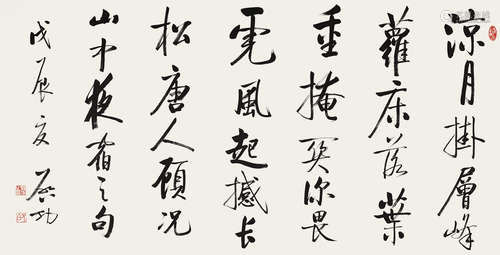 涼月掛層峰
蘿床落葉
重掩関深畏
虎風起撼长
松唐人顧況
山中夜宿之句
戊辰夏 启功